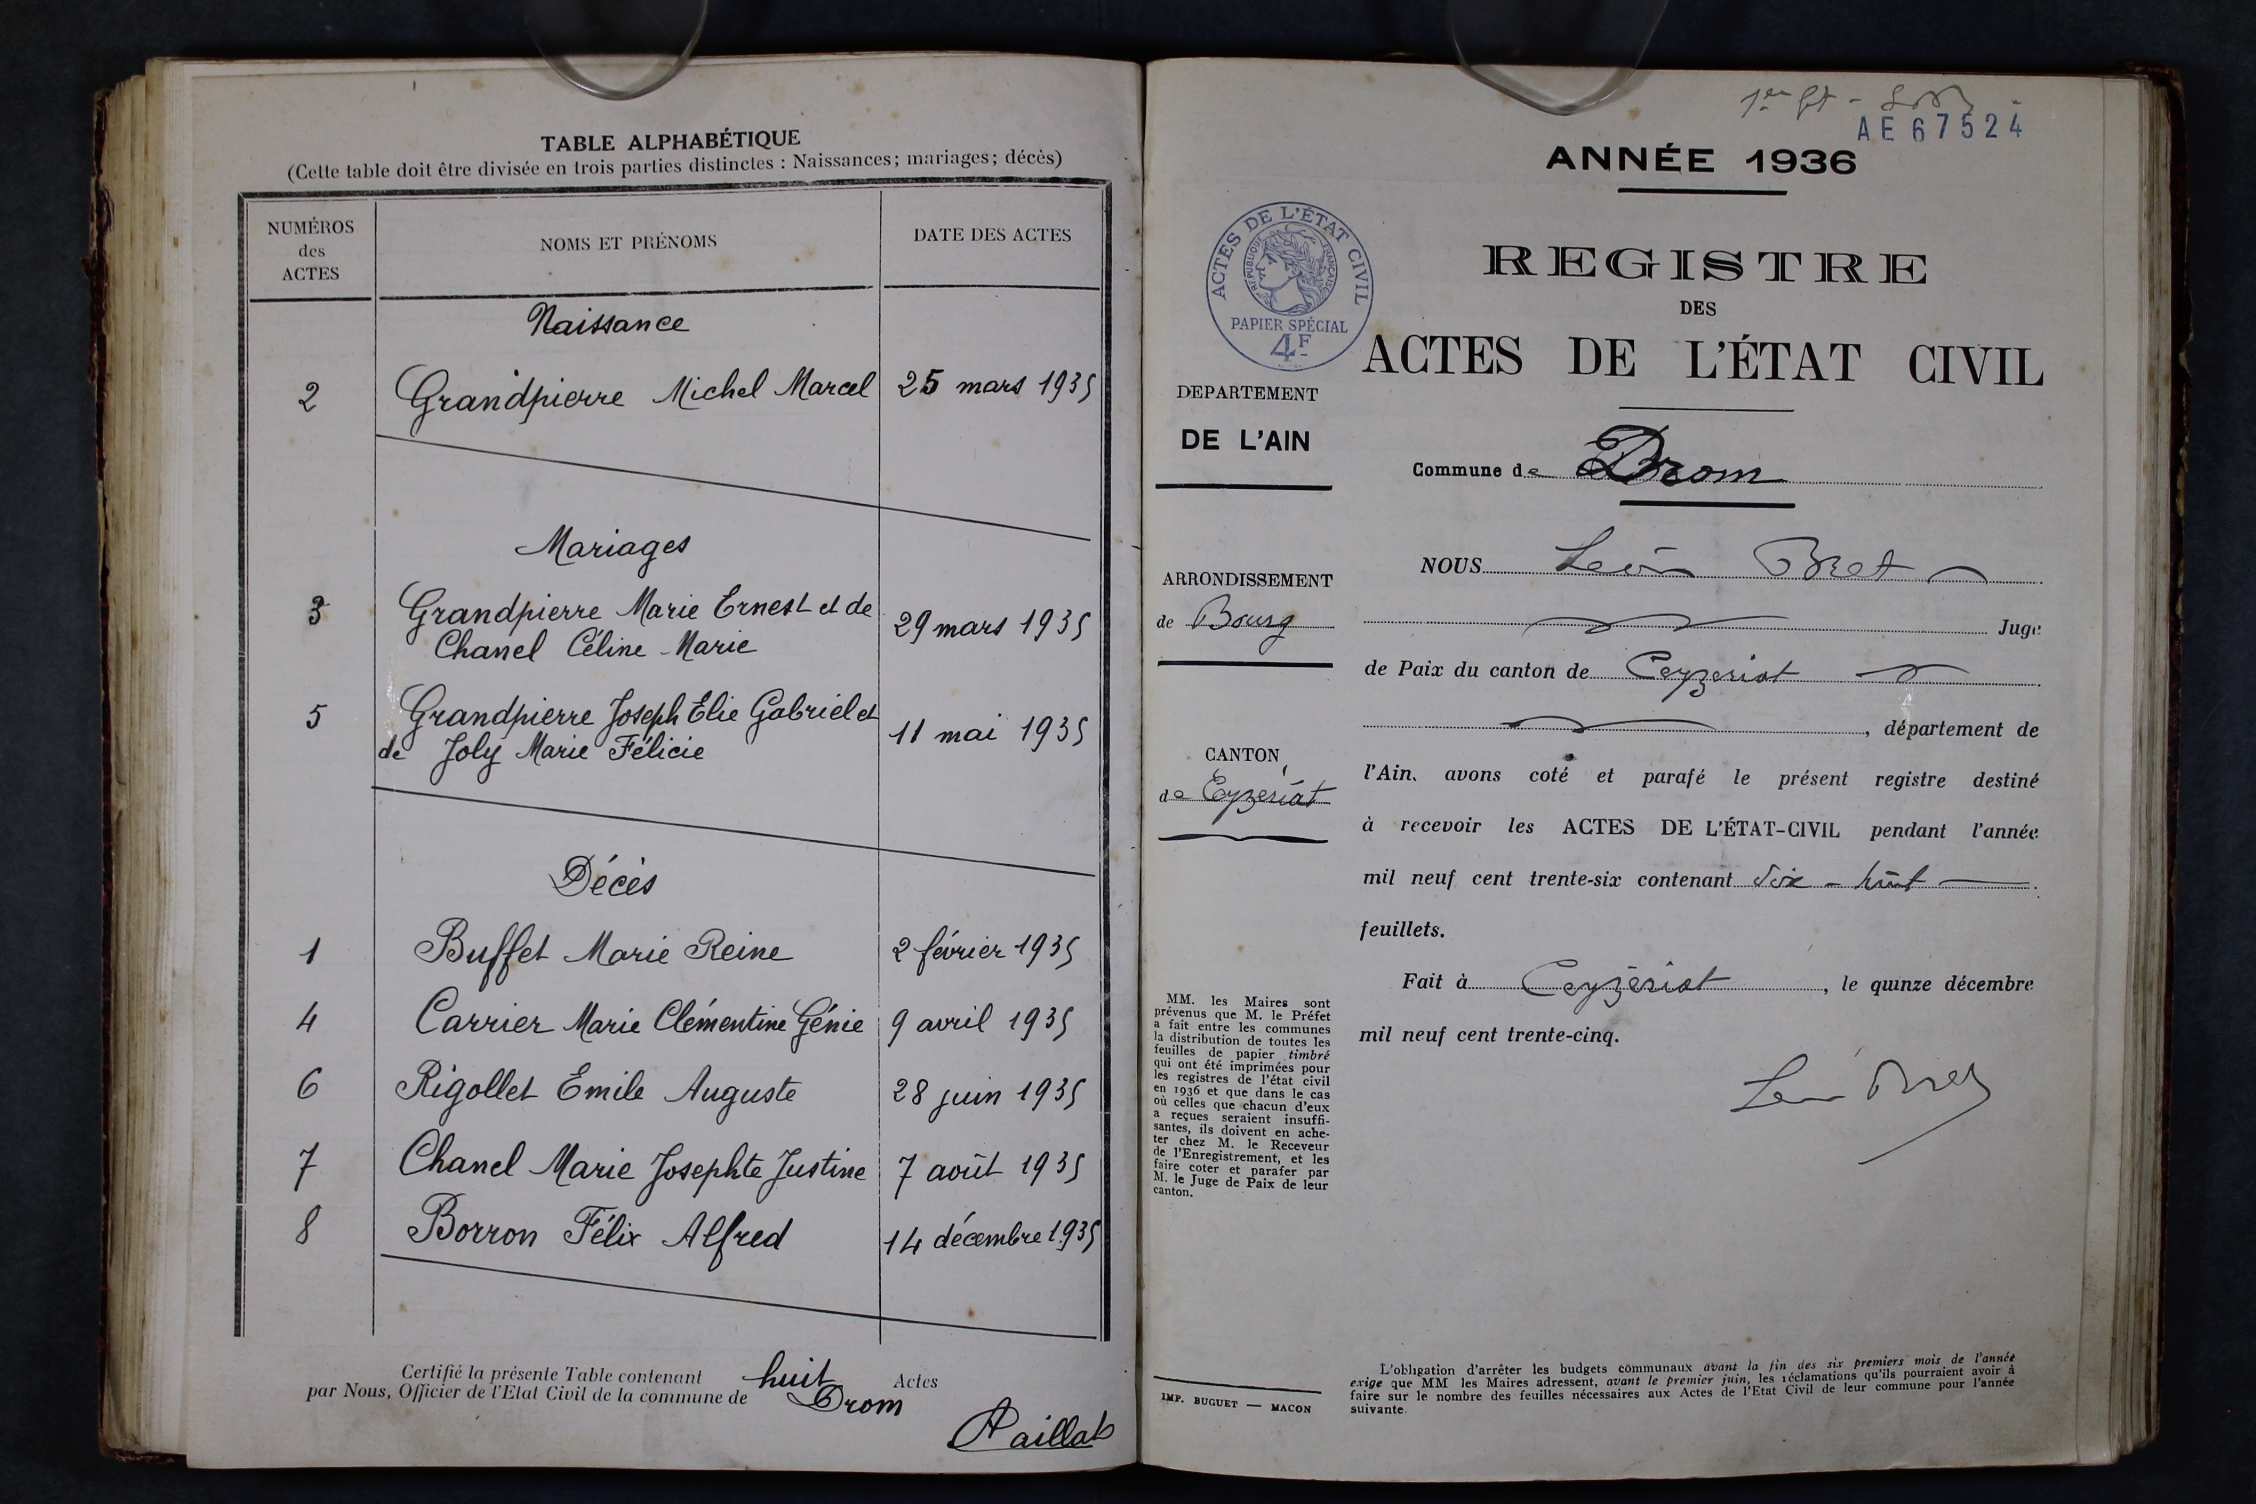 TABLE ALPHABÉTIQUE
(Cette table doit être divisée en trois parties distinctes : Naissances; mariages; décès)
NUMÉROS
des
ACTES
NOMS ET PRÉNOMS
DATE DES ACTES
Naissance
2 Grandpierre Michel Marcel 25 mars 1935
Mariages
3 Grandpierre Marie Ernest et de 29 mars 1935
Chanel Céline Marie
5 Grandpierre Joseph Elie Gabriel et 11 mai 1935
de Joly Marie Félicie
Décès
1 Buffet Marie Reine 2 février 1935
4 Carrier Marie Clémentine Génie 9 avril 1935
6 Rigollet Emile Auguste 28 juin 1935
7 Chanel Marie Josephte Justine 7 août 1935
8 Borron Félix Alfred 14 décembre 1935
Certifié la présente Table contenant huit Actes
par Nous, Officier de l'Etat Civil de la commune de Drom
Paillat
AE 67524
ANNÉE 1936
ACTES DE L'ÉTAT CIVIL
RÉPUBLIQUE FRANÇAISE
PAPIER SPÉCIAL
4F
REGISTRE
DES
ACTES DE L'ÉTAT CIVIL
DEPARTEMENT
DE L'AIN
Commune de Drom
ARRONDISSEMENT
de Bourg
CANTON
de Ceyzériat
NOUS Léon Bret
Juge
de Paix du canton de Ceyzeriat
, département de
l'Ain, avons coté et parafé le présent registre destiné
à recevoir les ACTES DE L'ÉTAT-CIVIL pendant l'année
mil neuf cent trente-six contenant dix-huit
feuillets.
Fait à Ceyzériat, le quinze décembre
mil neuf cent trente-cinq.
Léon Bret
MM. les Maires sont
prévenus que M. le Préfet
a fait entre les communes
la distribution de toutes les
feuilles de papier timbré
qui ont été imprimées pour
les registres de l'état civil
en 1936 et que dans le cas
où celles que chacun d'eux
a reçues seraient insuffi-
santes, ils doivent en ache-
ter chez M. le Receveur
de l'Enregistrement, et les
faire coter et parafer par
M. le Juge de Paix de leur
canton.
IMP. BUGUET — MACON
L'obligation d'arrêter les budgets communaux avant la fin des six premiers mois de l'année
exige que MM les Maires adressent, avant le premier juin, les réclamations qu'ils pourraient avoir à
faire sur le nombre des feuilles nécessaires aux Actes de l'Etat Civil de leur commune pour l'année
suivante.